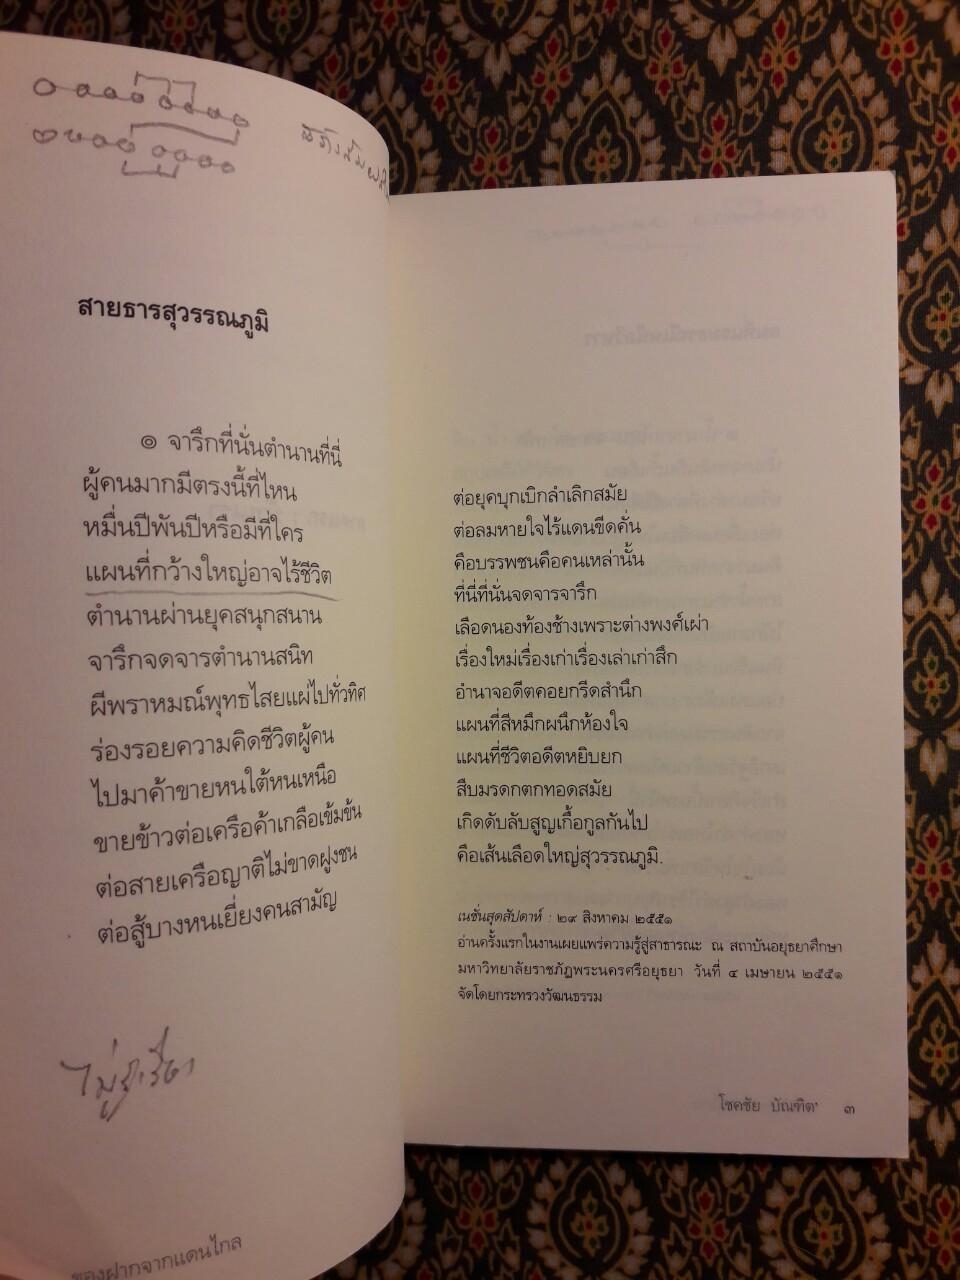 สายธารสุวรรณภูมิ
๏ จารึกที่นั่นตำนานที่นี่
ผู้คนมากมีตรงนี้ที่ไหน
หมื่นปีพันปีหรือมีที่ใคร
แผนที่กว้างใหญ่อาจไร้ชีวิต
ตำนานผ่านยุคสนุกสนาน
จารึกจดจารตำนานสนิท
ผีพราหมณ์พุทธไสยแผ่ไปทั่วทิศ
ร่องรอยความคิดชีวิตผู้คน
ไปมาค้าขายหนใต้หนเหนือ
ขายข้าวต่อเครือค้าเกลือเข้มข้น
ต่อสายเครือญาติไม่ขาดฝูงชน
ต่อสู้บางหนเยี่ยงคนสามัญ
ของฝากจากแดนไกล
ต่อยุคบุกเบิกล้ำเลิกสมัย
ต่อลมหายใจไร้แดนขีดคั่น
คือบรรพชนคือคนเหล่านั้น
ที่นี่ที่นั่นจดจารจารึก
เลือดนองท้องช้างเพราะต่างพงศ์เผ่า
เรื่องใหม่เรื่องเก่าเรื่องเล่าเก่าสึก
อำนาจอดีตคอยกรีดสำนึก
แผนที่สีหมึกผนึกห้องใจ
แผนที่ชีวิตอดีตหยิบยก
สืบมรดกตกทอดสมัย
เกิดดับลับสูญเกื้อกูลกันไป
คือเส้นเลือดใหญ่สุวรรณภูมิ.
เนชั่นสุดสัปดาห์ : ๒๙ สิงหาคม ๒๕๕๑
อ่านครั้งแรกในงานเผยแพร่ความรู้สู่สาธารณะ ณ สถาบันอยุธยาศึกษา
มหาวิทยาลัยราชภัฏพระนครศรีอยุธยา วันที่ ๔ เมษายน ๒๕๕๑
จัดโดยกระทรวงวัฒนธรรม
โชคชัย บัณฑิต' ๓